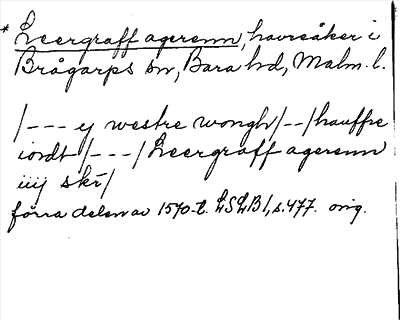 * Leergraff agerenn, havreåker i
Brågarps sn, Bara hd, Malm. l.
/--- ij westre wongh/--/hauffre
iordt/---/Leergraff agerenn
iiij skr̄/
förra delen av 1570-t. LSLB1, s. 477. orig.